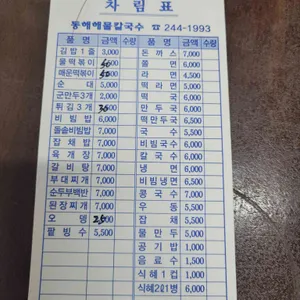 차 림 표
동해해물칼국수 ☎ 244-1993
품 명 금액 수량 품 명 금액 수량
김밥 1줄 3,000 돈까스 7,000
물떡볶이 쫄면 6,000
매운떡볶이 라면 4,500
순대 5,000 떡라면 5,000
군만두3개 2,000 떡국 6,000
튀김3개 만두국 6,000
비빔밥 6,000 떡만두국 6,500
돌솥비빔밥 7,000 국수 5,500
잡채밥 7,000 비빔국수 6,000
육개장 7,000 칼국수 6,000
갈비탕 7,000 냉면 6,000
부대찌개 7,000 비빔냉면 6,500
순두부백반 7,000 콩국수 7,000
된장찌개 7,000 우동 5,500
오뎅 잡채 5,500
팥빙수 5,500 물만두 5,000
공기밥 1,000
음료수 1,500
식혜1컵 1,000
식혜2ℓ1병 6,000